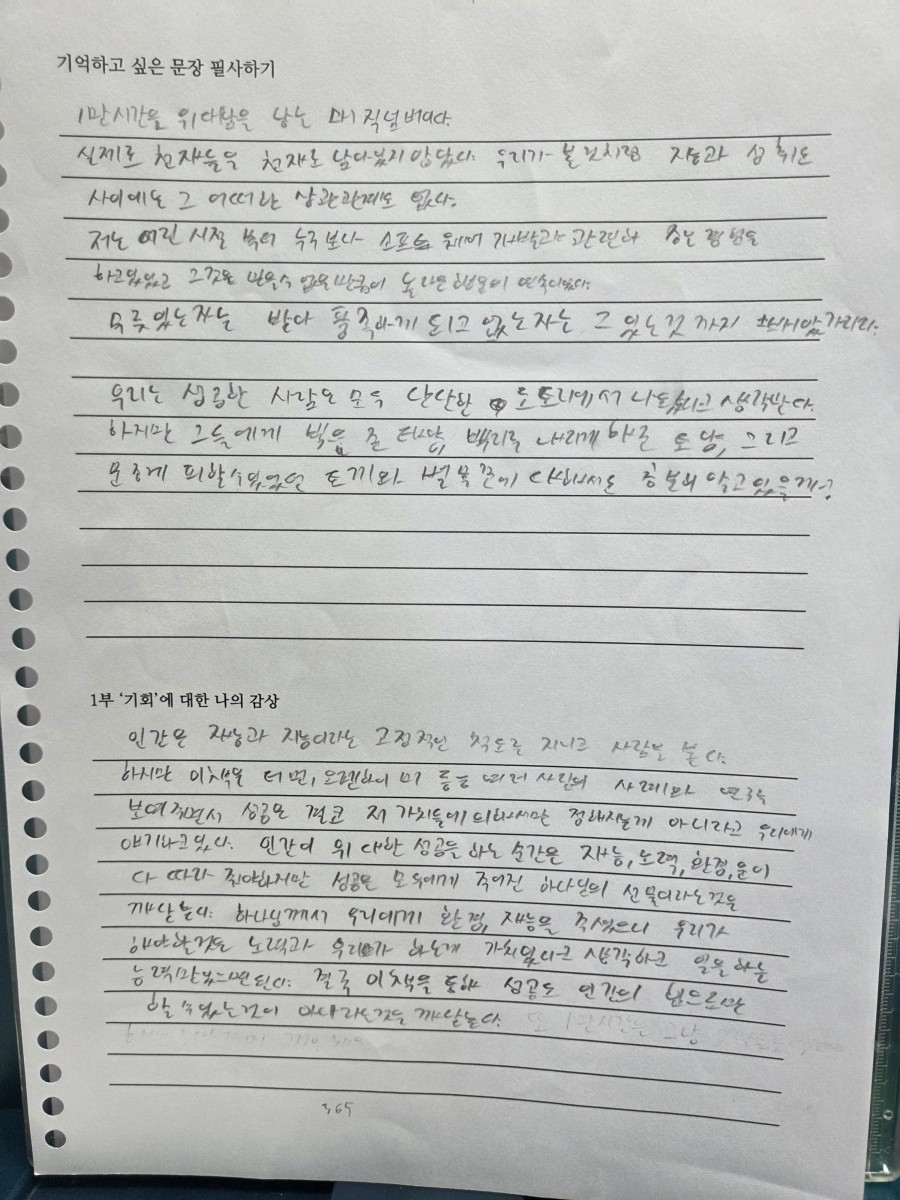 기억하고 싶은 문장 필사하기
1만시간은 위대함을 낳는 매직넘버다.
실제로 천재들은 천재로 남다 않았다. 우리가 본 것처럼 지능과 성취도
사이에는 그 어떠한 상관관계도 없다.
저는 어린 시절 부터 누구보다 소프트 웨어 개발과 관련한 좋은 경험을
하고있었고 그것은 믿을수 없을만큼이 놀라운 행운이 연속이었다.
무릇있는자는 받아 풍족하게 되고 없는자는 그 있는것 까지 빼앗가리라.
우리는 성공한 사람은 모두 단단한 도토리에서 나온다고 생각한다.
하지만 그들에게 빛을 준 태양, 뿌리를 내리게 해준 토양, 그리고
운좋게 피할수있었던 토끼와 벌목꾼에 대해서도 충분히 알고 있을까?
1부 ‘기회’에 대한 나의 감상
인간은 재능과 지능이라는 고정적인 척도를 지니고 사람을 본다.
하지만 이책은 터먼, 오펜하이머 등등 여러 사람의 사례와 연구를
보여주면서 성공은 결코 저 가치들에 의해서만 정해지는게 아니라고 우리에게
얘기하고있다. 인간이 위대한 성공을 하는 순간은 재능, 노력, 환경, 운이
다 따라 줘야하지만 성공은 모두에게 주어진 하나님의 선물이라는것을
깨달는다. 하나님께서 우리에게 환경, 재능을 주셨으니 우리가
해야할것은 노력과 우리가 하는게 가치있다고 생각하고 일을 하는
능력만있으면된다. 결국 이책을 통해 성공도 인간의 힘으로만
할 수있는것이 아니라는것을 깨달는다. 또 1만시간은 그냥
365